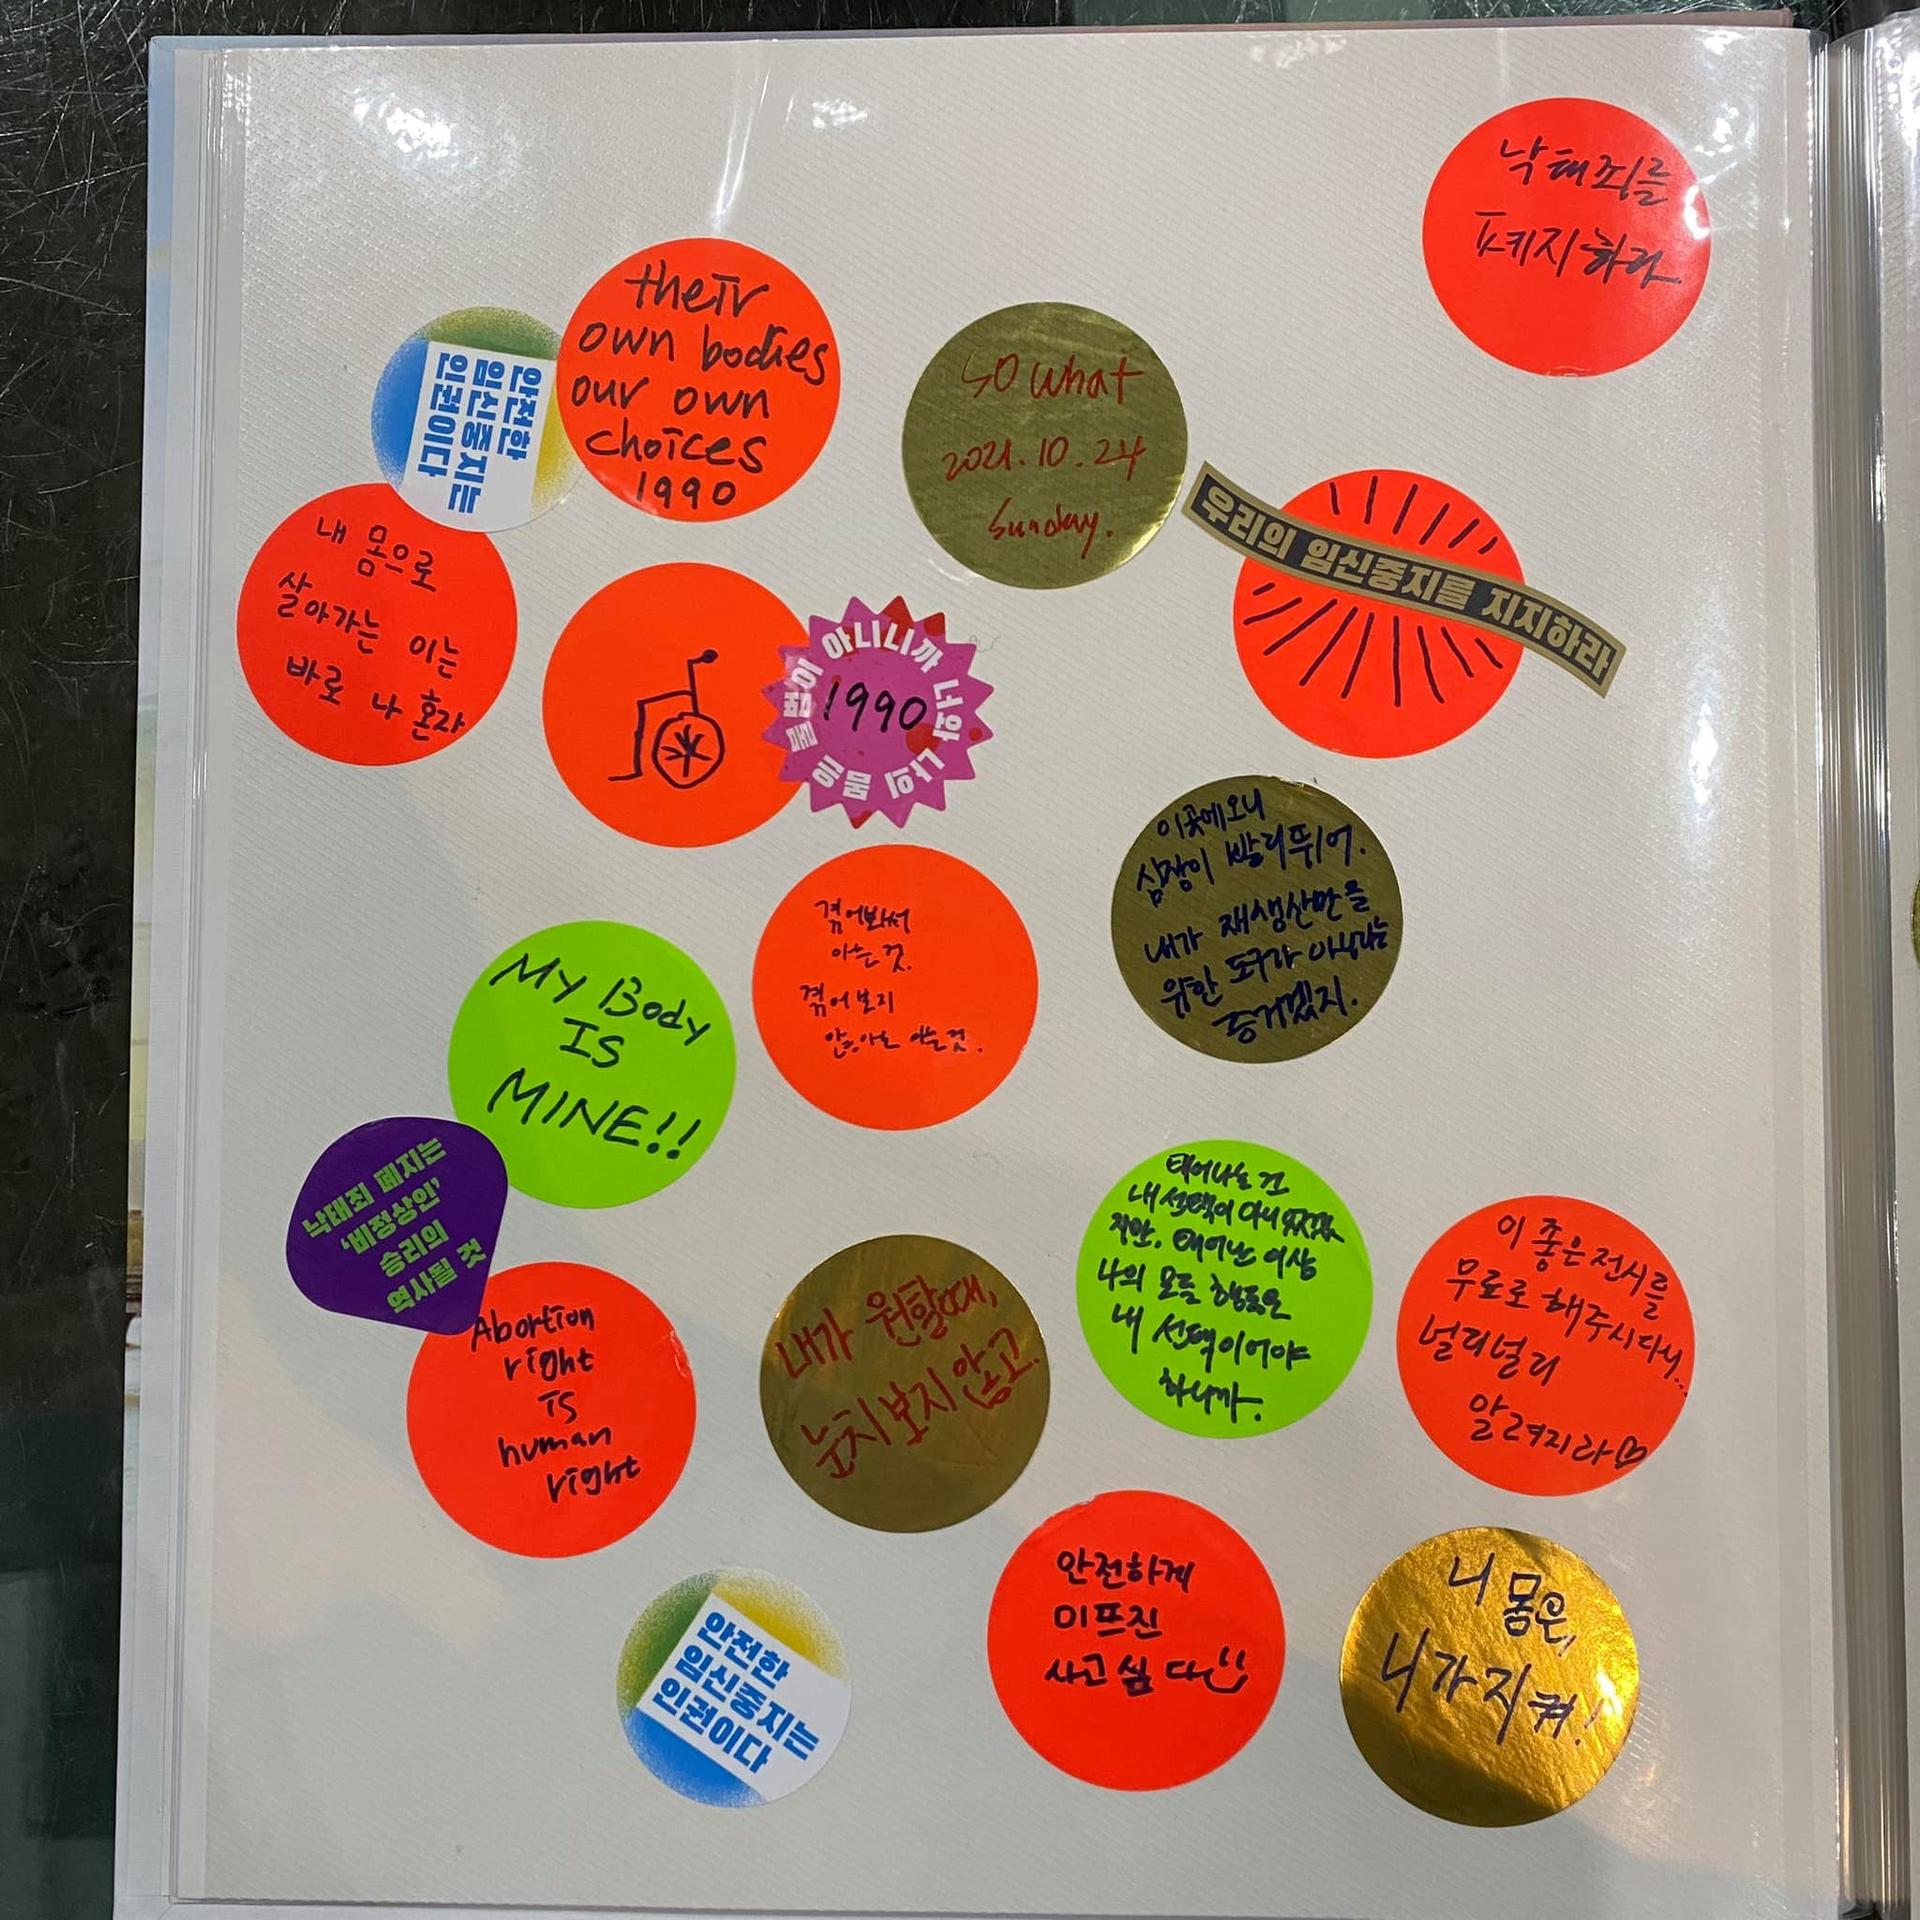 낙태죄를
폐지하라
their
own bodies
our own
choices
1990
안전한
임신중지는
인권이다
so what
2021.10.24
Sunday.
우리의 임신중지를 지지하라
내 몸으로
살아가는 이는
바로 나 혼자
아니니까 너와 나의 몸은
1990
이곳에 오니
심장이 빨리뛰어.
내가 재생산만을
위한 도구가 아니라는
증거겠지.
겪어봐서
아는 것.
겪어보지
않아도 아는 것.
My Body
IS
MINE!!
낙태죄 폐지는
'비정상인'
승리의
역사될 것
태어나는 건
내 선택이 아니었겠
지만, 태어난 이상
나의 모든 행동은
내 선택이어야
하니까.
이 좋은 전시를
무료로 해주시다니...
널리널리
알려지라♡
Abortion
right
is
human
right
내가 원할때,
눈치보지 않고.
안전하게
미프진
사고 싶다
니 몸은,
니가지켜!
안전한
임신중지는
인권이다